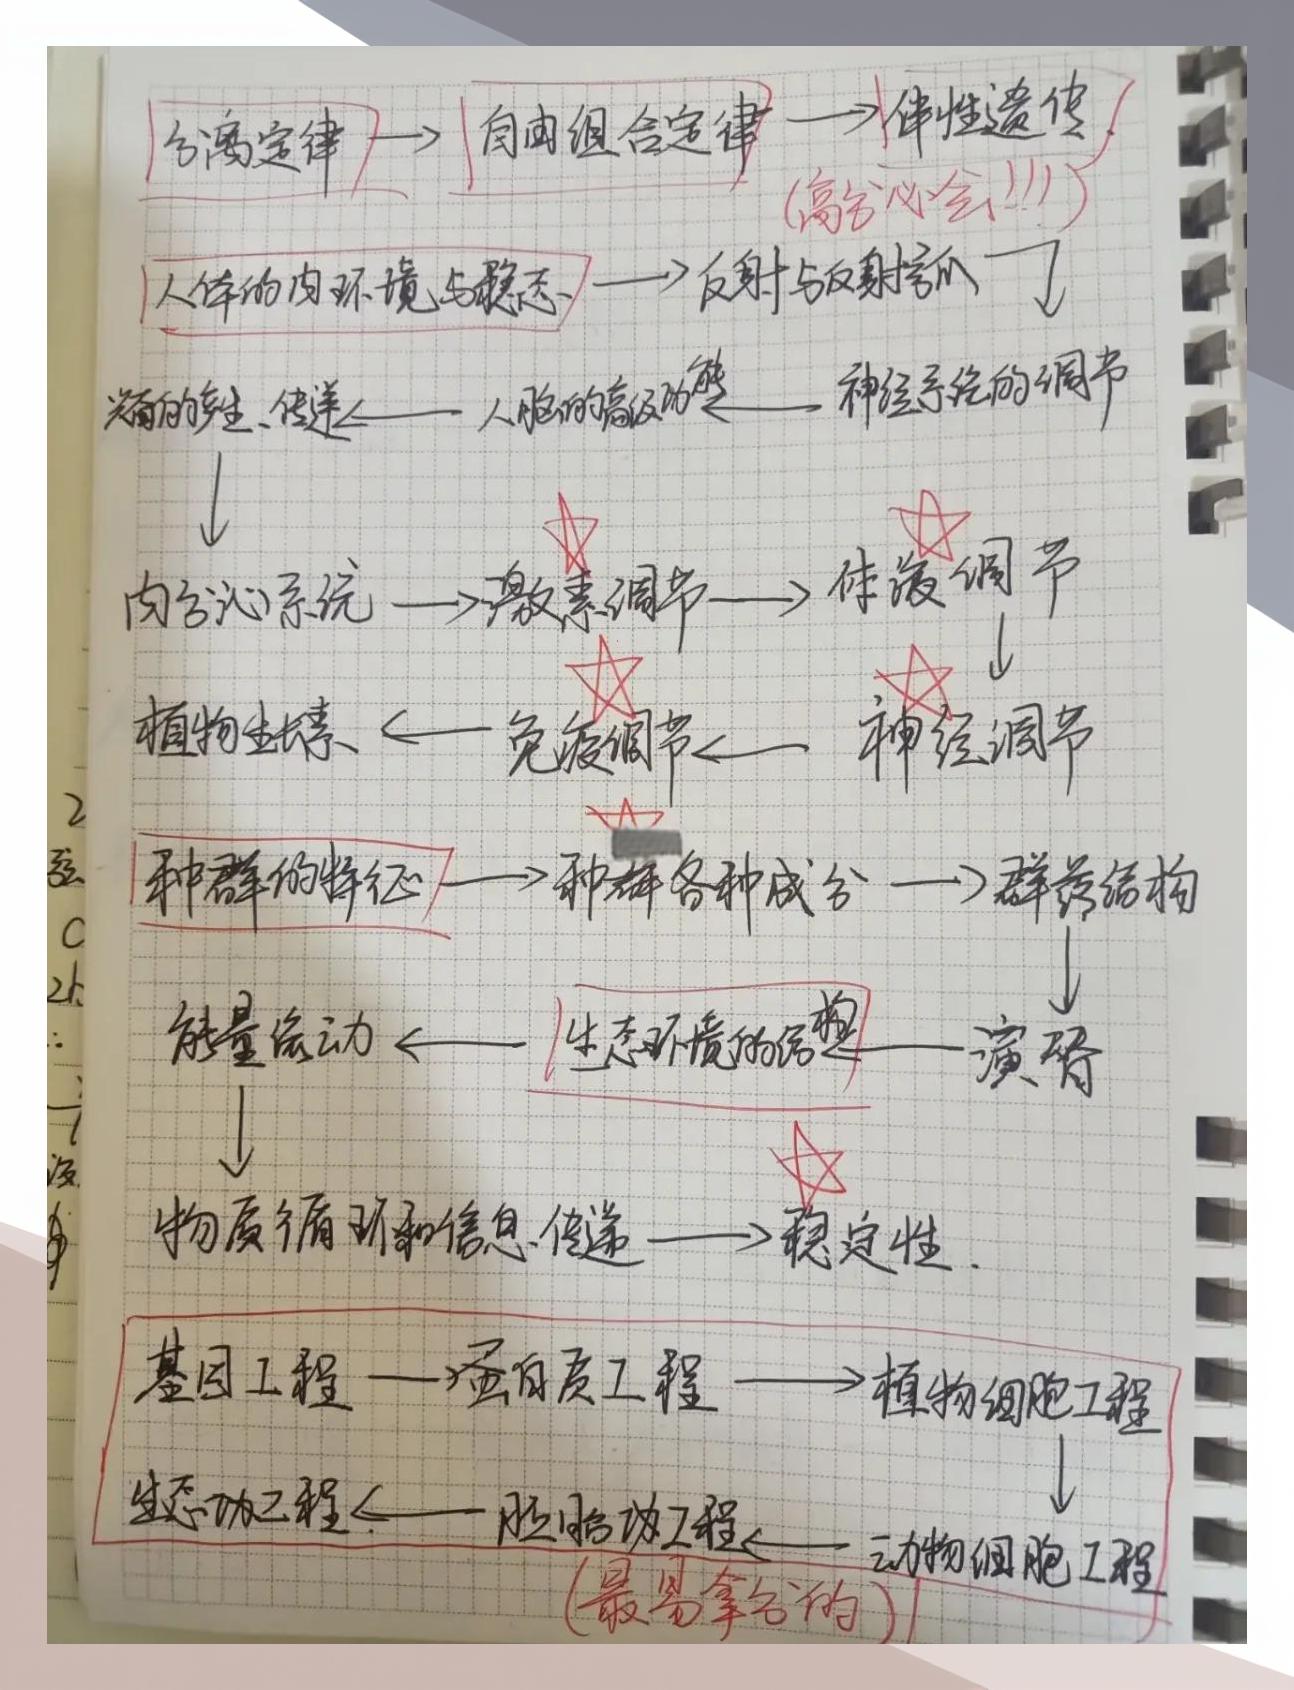 分离定律 → 自由组合定律 → 伴性遗传
(高分必会!!!)
人体的内环境与稳态 → 反射与反射弧
兴奋的产生、传递 ← 人脑的高级功能 ← 神经系统的调节
内分泌系统 → 激素调节 → 体液调节
植物生长素 ← 免疫调节 ← 神经调节
种群的特征 → 种群各种成分 → 群落结构
能量流动 ← 生态环境的结构 ← 演替
物质循环和信息传递 → 稳定性.
基因工程 → 蛋白质工程 → 植物细胞工程
生态功工程 ← 胚胎功工程 ← 动物细胞工程
(最易拿分的)
2
C